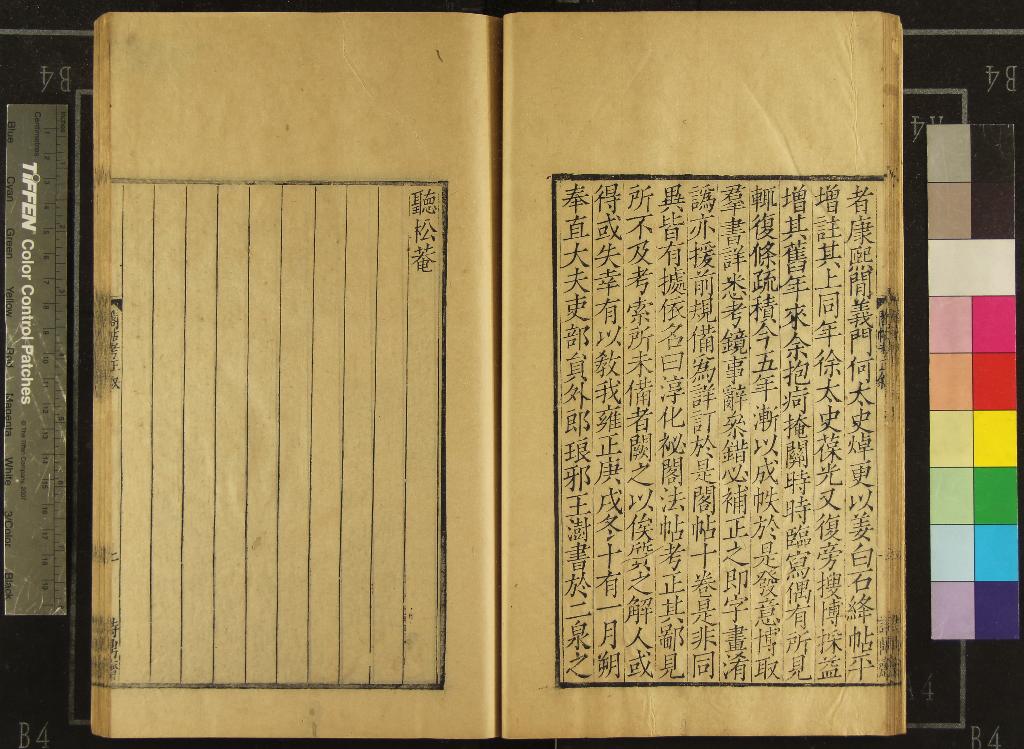 者康熙間義門何太史焯更以姜白石絳帖平
增註其上同年徐太史葆光又復旁搜博採益
增其舊年來余抱痾掩關時時臨寫偶有所見
輒復條疏積今五年漸以成帙於是發意博取
羣書詳悉考鏡事辭桀錯必補正之即字畫淆
譌亦援前規備為詳訂於是閣帖十卷是非同
異皆有據依名曰淳化祕閣法帖考正其鄙見
所不及考索所未備者闕之以俟質之解人或
得或失幸有以教我雍正庚戌冬十有一月朔
奉直大夫吏部員外郎琅邪王澍書於二泉之
聽松菴
TIFFEN Color Control Patches
© The Tiffen Company, 2007
Centimetres
Inches
Blue
Cyan
Green
Yellow
Red
Magenta
White
3/Color
Black
B4
B4
B4
B4
A4